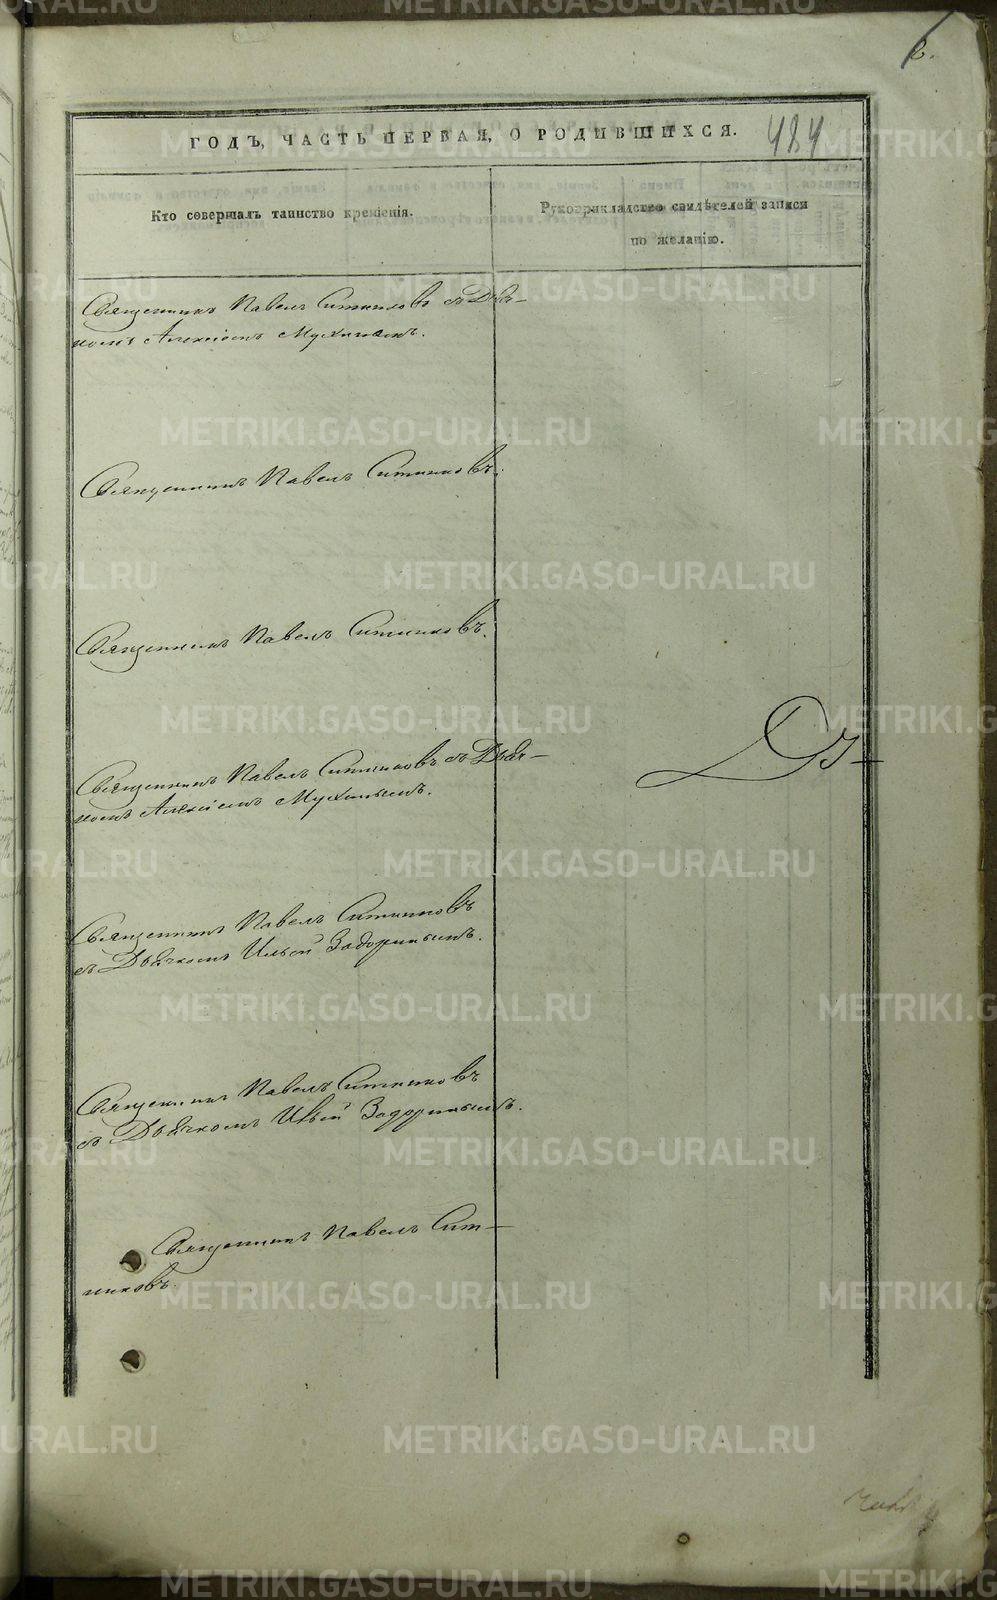 6.
ГОДЪ, ЧАСТЬ ПЕРВАЯ, О РОДИВШИХСЯ. 484
Кто совершалъ таинство крещенія.
Рукоприкладство свидѣтелей записи
по желанію.
Священникъ Павелъ Ситниковъ съ Дьяч-
комъ Алексіемъ Мухинымъ.
Священникъ Павелъ Ситниковъ.
Священникъ Павелъ Ситниковъ.
Священникъ Павелъ Ситниковъ съ Дьяч-
комъ Алексіемъ Мухинымъ.
Священникъ Павелъ Ситниковъ
съ Дьячкомъ Ильей Задоринымъ.
Священникъ Павелъ Ситниковъ
съ Дьячкомъ Ильей Задоринымъ.
Священникъ Павелъ Сит-
никовъ.
METRIKI.GASO-URAL.RU